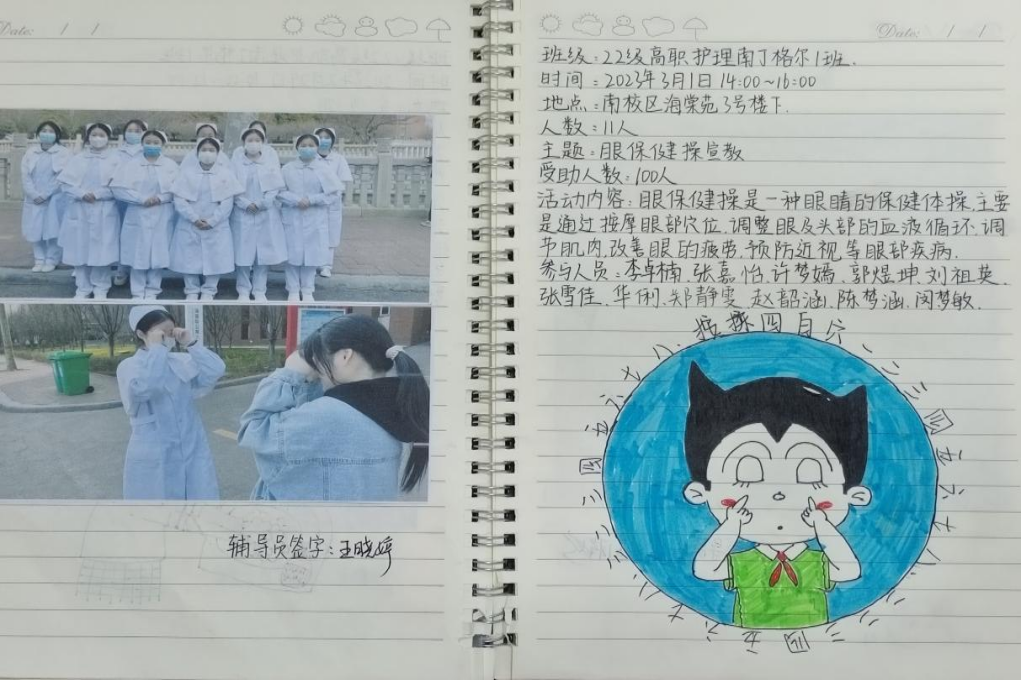 Date: / /
辅导员签字:王晓婷
Date: / /
班级:22级高职护理南丁格尔1班.
时间:2023年3月1日 14:00~16:00
地点:南校区海棠苑3号楼下.
人数:11人
主题:眼保健操宣教
受助人数:100人
活动内容:眼保健操是一种眼睛的保健体操,主要
是通过按摩眼部穴位,调整眼及头部的血液循环,调
节肌肉,改善眼的疲劳,预防近视等眼部疾病.
参与人员:李卓楠、张嘉怡、许梦嫣、郭煜坤、刘祖英、
张雪佳、华俐、郑静雯、赵韶涵、陈梦涵、闵梦敏.
按揉四白穴